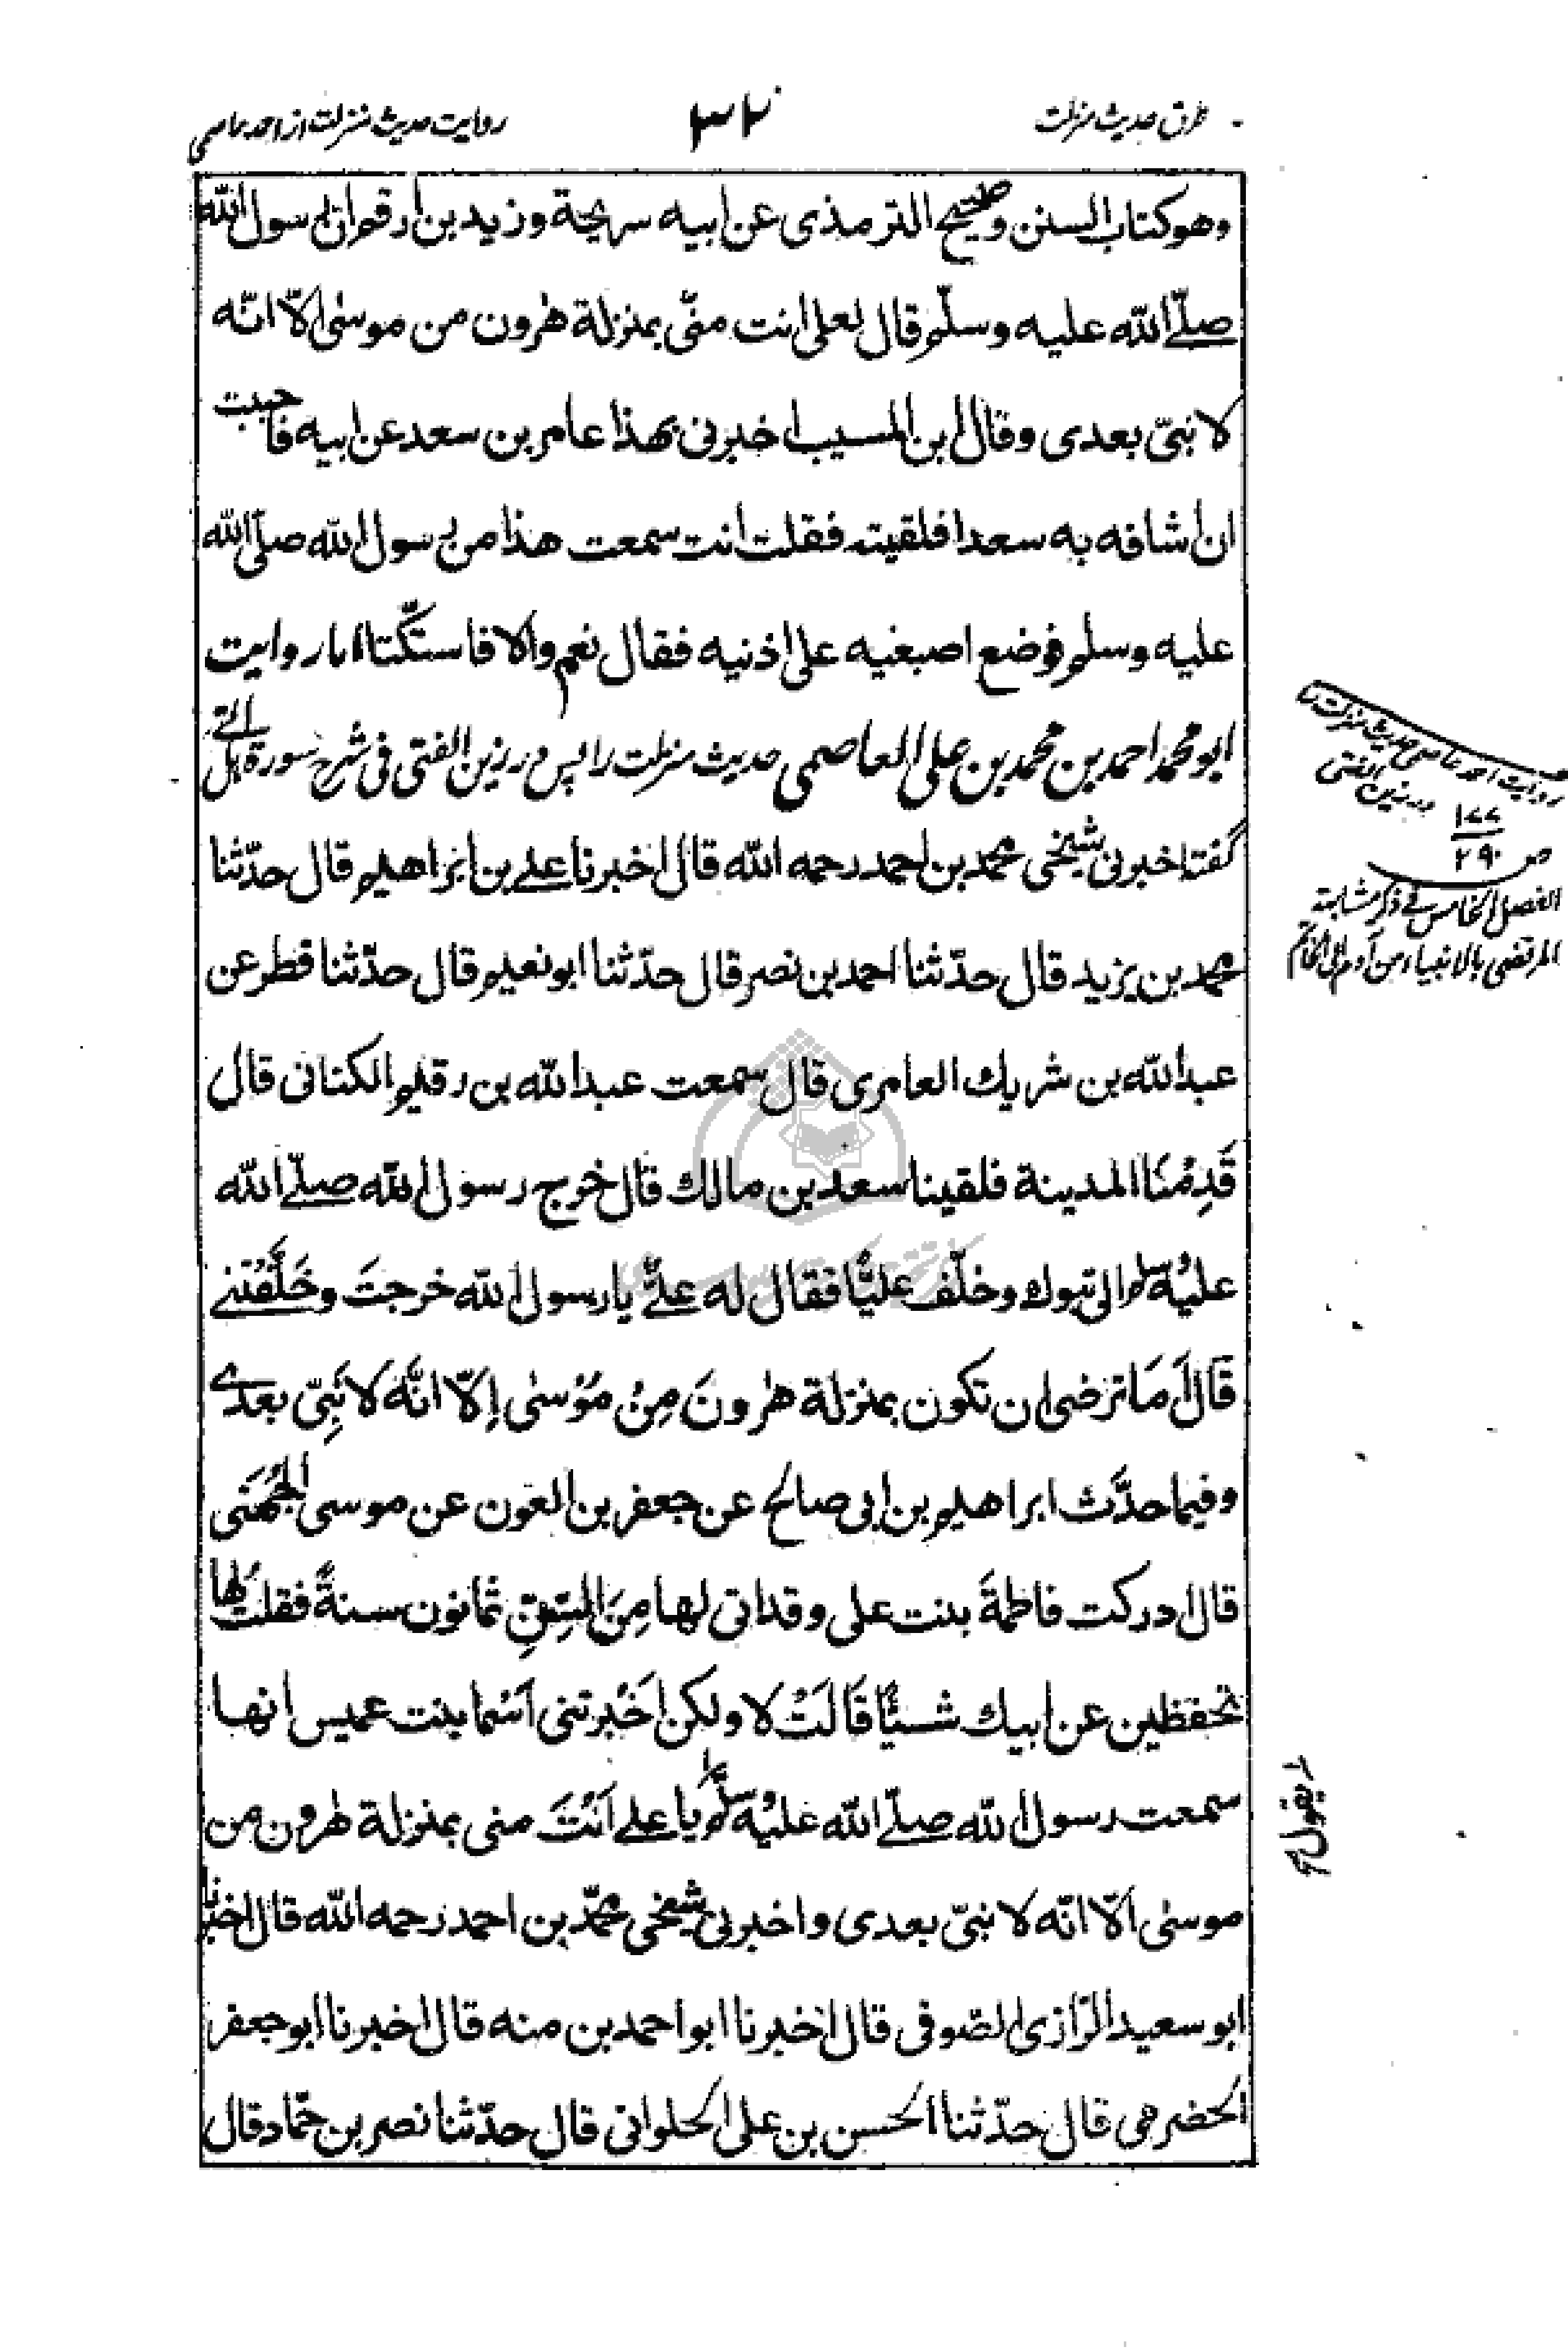 طرق حدیث منزلت
۳۲
روایت حدیث منزلت از احمد عاصمی
وهو كتاب السنن وصحيح الترمذى عن ابيه سريحة وزيد بن ارقم ان رسول الله
صلّے الله عليه وسلّم قال لعلى انت منّى بمنزلة هٰرون من موسىٰ الّا انّه
لا نبىّ بعدى وقال ابن المسيب اخبرنى بهذا عامر بن سعد عن ابيه فاحببت
ان اشافه به سعدا فلقيته فقلت انت سمعت هذا من رسول الله صلّى الله
عليه وسلم فوضع اصبعيه على اذنيه فقال نعم والا فاستكّتا اما روایت
ابو محمد احمد بن محمد بن علی العاصمی حدیث منزلت را پس در زین الفتی فی شرح سورة هل اتے
گفته اخبرنى شيخى محمد بن احمد رحمه الله قال اخبرنا علے بن ابراهيم قال حدّثنا
محمد بن يزيد قال حدّثنا احمد بن نصر قال حدّثنا ابو نعيم قال حدّثنا فطر عن
عبد الله بن شريك العامرى قال سمعت عبد الله بن رقيم الكنانى قال
قَدِمْنَا المدينة فلقينا سعد بن مالك قال خرج رسول الله صلّے الله
عليْه وسلم الى تبوك وخلّف عليًّا فقال له علىٌّ يا رسول الله خرجتَ وخَلَّفْتَنے
قال أمَا ترضى ان تكون بمنزلة هٰرونَ مِنْ مُوْسٰى إلّا انَّه لا نَبِىّ بعدے
وفيما حدَّث ابراهيم بن ابى صالح عن جعفر بن العون عن موسى الجُهَنى
قال ادركت فاطمةَ بنت على وقد اتى لها مِنَ السِّنِّ ثمانون سنةً فقلت لها
تحفظين عن ابيك شيئًا قَالَتْ لا ولكن اَخْبرتنى اَسْما بنت عميس انها
سمعت رسول الله صلّے الله عليْه وسلّم يا علے اَنْتَ منى بمنزلة هٰرون من
موسىٰ الّا انّه لا نبىّ بعدى واخبرنى شيخى محمّد بن احمد رحمه الله قال اخبرنا
ابو سعيد الرّازى الصّوفى قال اخبرنا ابو احمد بن منه قال اخبرنا ابو جعفر
الحضرمى قال حدّثنا الحسن بن على الحلوانى قال حدّثنا نصر بن حمّاد قال
روایت احمد عاصمی حدیث منزلت را
در زین الفتی
ص ۱۷۷
۲۹۰
الفصل الخامس فے ذكر مشابهة
المرتضى بالانبياء من آدم الى الخاتم
يقول